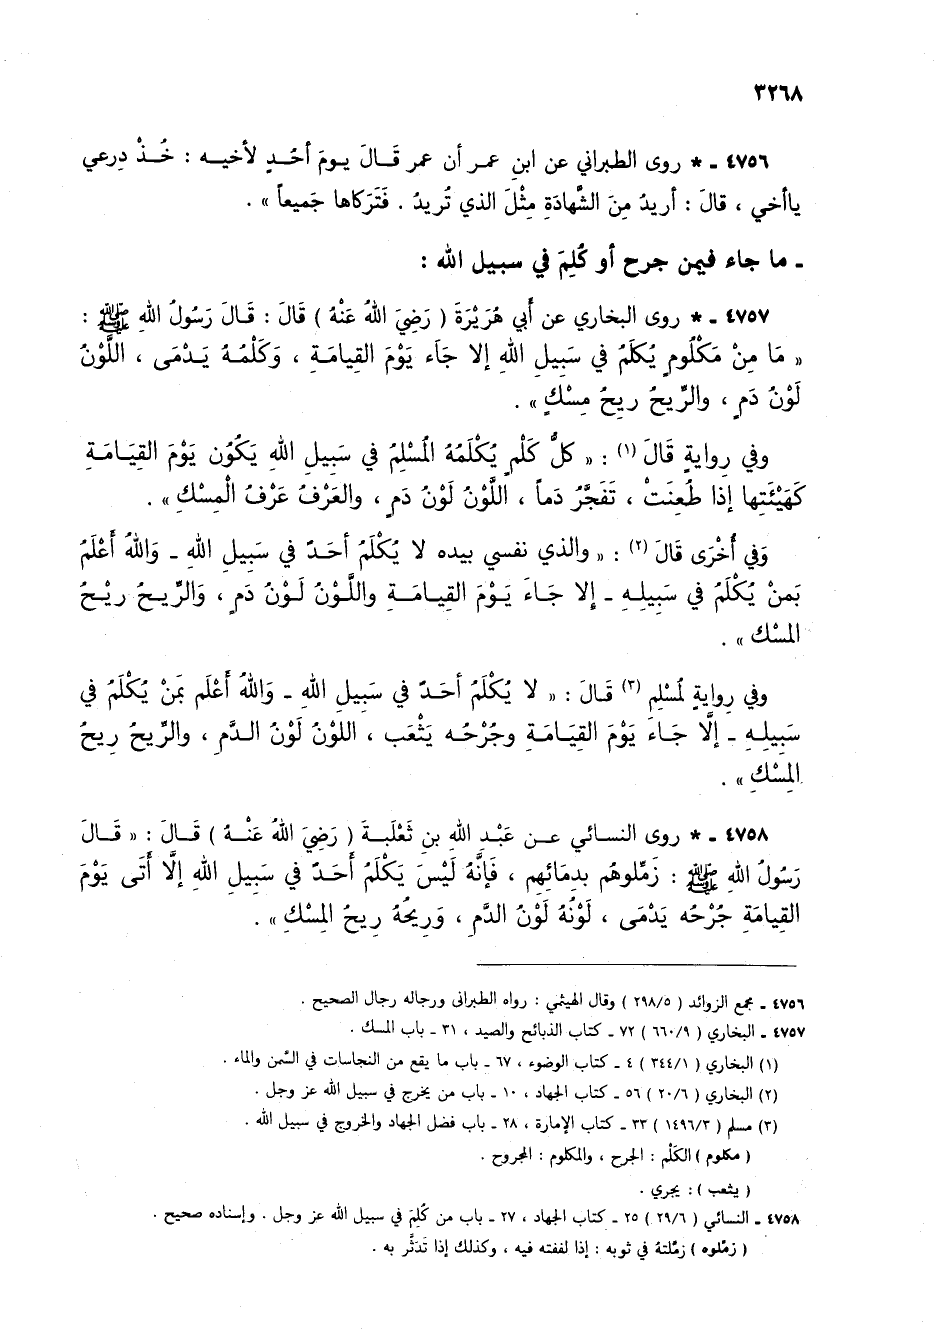 ٣٢٦٨
٤٧٥٦ ـ * روى الطبراني عن ابنِ عمـر أن عمر قَـالَ يـومَ أُحُـدٍ لأخيـه : خُـذْ دِرعي
ياأخي ، قالَ : أريدُ مِنَ الشَّهادَةِ مِثْلَ الذي تُريدُ . فَتَرَكاها جَميعاً » .
ـ ما جاء فيمن جرح أو كُلِمَ في سبيل الله :
٤٧٥٧ ـ * روى البخاري عن أَبي هُرَيْرَةَ ( رَضِيَ اللهُ عَنْهُ ) قَالَ : قَـالَ رَسُولُ اللهِ ﷺ :
« مَا مِنْ مَكْلُومٍ يُكلَمُ في سَبيلِ اللهِ إلا جَاءَ يَوْمَ القِيامَـةِ ، وَكَلْمُـهُ يَـدْمَى ، اللَّوْنُ
لَوْنُ دَمٍ ، والرِّيحُ رِيحُ مِسْكٍ » .
وفي رِوايةٍ قَالَ (١) : « كلُّ كَلْمٍ يُكْلَمُهُ المُسْلِمُ في سَبيلِ اللهِ يَكُون يَوْمَ القِيَـامَـةِ
كَهَيْئَتِها إذا طُعِنَتْ ، تَفَجَّرُ دَماً ، اللَّوْنُ لَوْنُ دَمٍ ، والعَرْفُ عَرْفُ الْمِسْكِ » .
وَفي أُخْرَى قَالَ (٢) : « والذي نفسي بيده لا يُكْلَمُ أحَـدٌ في سَبِيلِ اللهِ ـ وَاللهُ أَعْلَمُ
بَمنْ يُكْلَمُ في سَبِيلِـهِ ـ إلا جَـاءَ يَـوْمَ القِيـامَـةِ واللَّـوْنُ لَـوْنُ دَمٍ ، وَالرِّيـحُ ريْـحُ
المسْك » .
وفي رِوايةٍ لمُسْلِمٍ (٣) قَـالَ : « لا يُكْلَمُ أحَـدٌ في سَبيلِ اللهِ ـ وَاللهُ أَعْلَم بَمَنْ يُكْلَمُ في
سَبيلِهِ ـ إلَّا جَـاءَ يَوْمَ القِيَـامَـةِ وجُرْحُـه يَثْعَب ، اللوْنُ لَوْنُ الـدَّمِ ، والرِّيحُ رِيحُ
المِسْكِ » .
٤٧٥٨ ـ * روى النسائي عـن عَبْـد اللهِ بنِ ثَعْلَبَـةَ ( رَضِيَ اللهُ عَنْـهُ ) قَـالَ : « قَـالَ
رَسُولُ اللهِ ﷺ : زَمِّلُوهُم بِدِمَائِهِم ، فَإِنَّهُ لَيْسَ يَكْلَمُ أَحَـدٌ في سَبيلِ اللهِ إلَّا أَتَى يَوْمَ
القِيامَةِ جُرْحُه يَدْمَى ، لَوْنُهُ لَوْنُ الدَّمِ ، وَرِيحُهُ رِيحُ المِسْكِ » .
٤٧٥٦ ـ مجمع الزوائد ( ٢٩٨/٥ ) وقال الهيثمي : رواه الطبرانى ورجاله رجال الصحيح .
٤٧٥٧ ـ البخاري ( ٦٦٠/٩ ) ٧٢ ـ كتاب الذبائح والصيد ، ٣١ ـ باب المسك .
(١) البخاري ( ٣٤٤/١ ) ٤ ـ كتاب الوضوء ، ٦٧ ـ باب ما يقع من النجاسات في السَّمن والماء .
(٢) البخاري ( ٢٠/٦ ) ٥٦ ـ كتاب الجهاد ، ١٠ ـ باب من يخرج في سبيل الله عز وجل .
(٣) مسلم ( ١٤٩٦/٣ ) ٣٣ ـ كتاب الإمارة ، ٢٨ ـ باب فضل الجهاد والخروج في سبيل الله .
( مكلوم ) الكَلْم : الجرح ، والمكلوم : المجروح .
( يثعب ) : يجري .
٤٧٥٨ ـ النسائي ( ٢٩/٦ ) ٢٥ ـ كتاب الجهاد ، ٢٧ ـ باب من كُلِمَ في سبيل الله عز وجل . وإسناده صحيح .
( زمِّلوه ) زمِّلتهُ في ثوبه : إذا لففته فيه ، وكذلك إذا تَدَثَّر به .